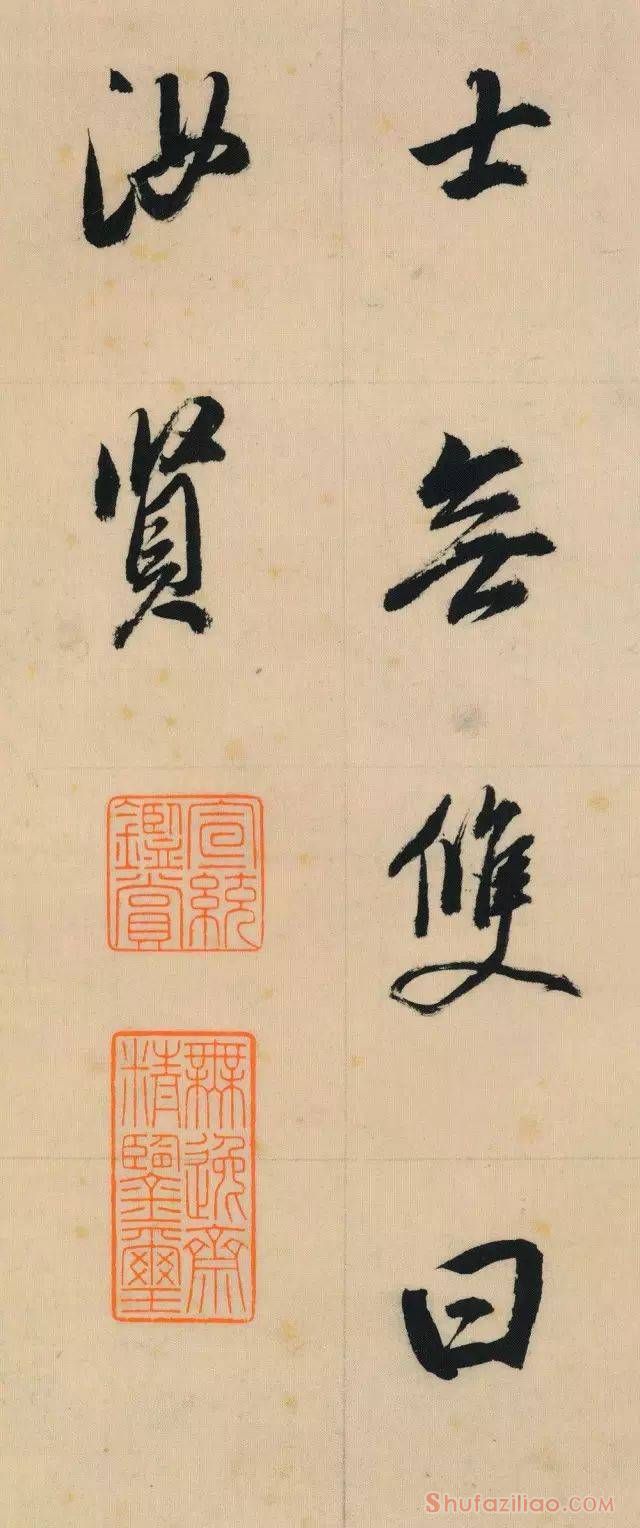 士無雙曰
汝賢
宣統鑑賞
無逸齋精鑒璽
Shufaziliao.COM